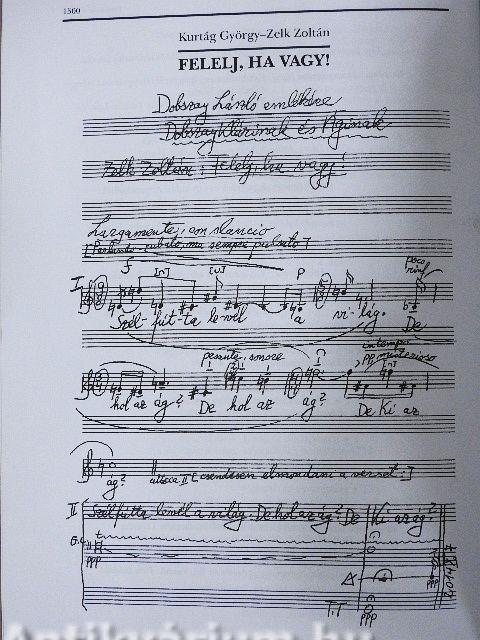 1500
Kurtág György–Zelk Zoltán
FELELJ, HA VAGY!
Dobszay László emlékére
Dobszay Klárinak és Áginak
Zelk Zoltán: Felelj, ha vagy!
Largamente, con slancio
[Parlando, rubato, ma sempre pulsato]
f p poco rinf
I
Szél-fút-ta le-vél a vi-lág. De
pesante, smorz intempo pp misterioso
hol az ág? De hol az ág? De Ki az
ág? attacca II [csendesen elmondani a verset:]
II Szélfútta levél a világ. De hol az ág? De Ki az ág?
G.c.
ppp ppp
T.T ppp
Antikvárium.hu